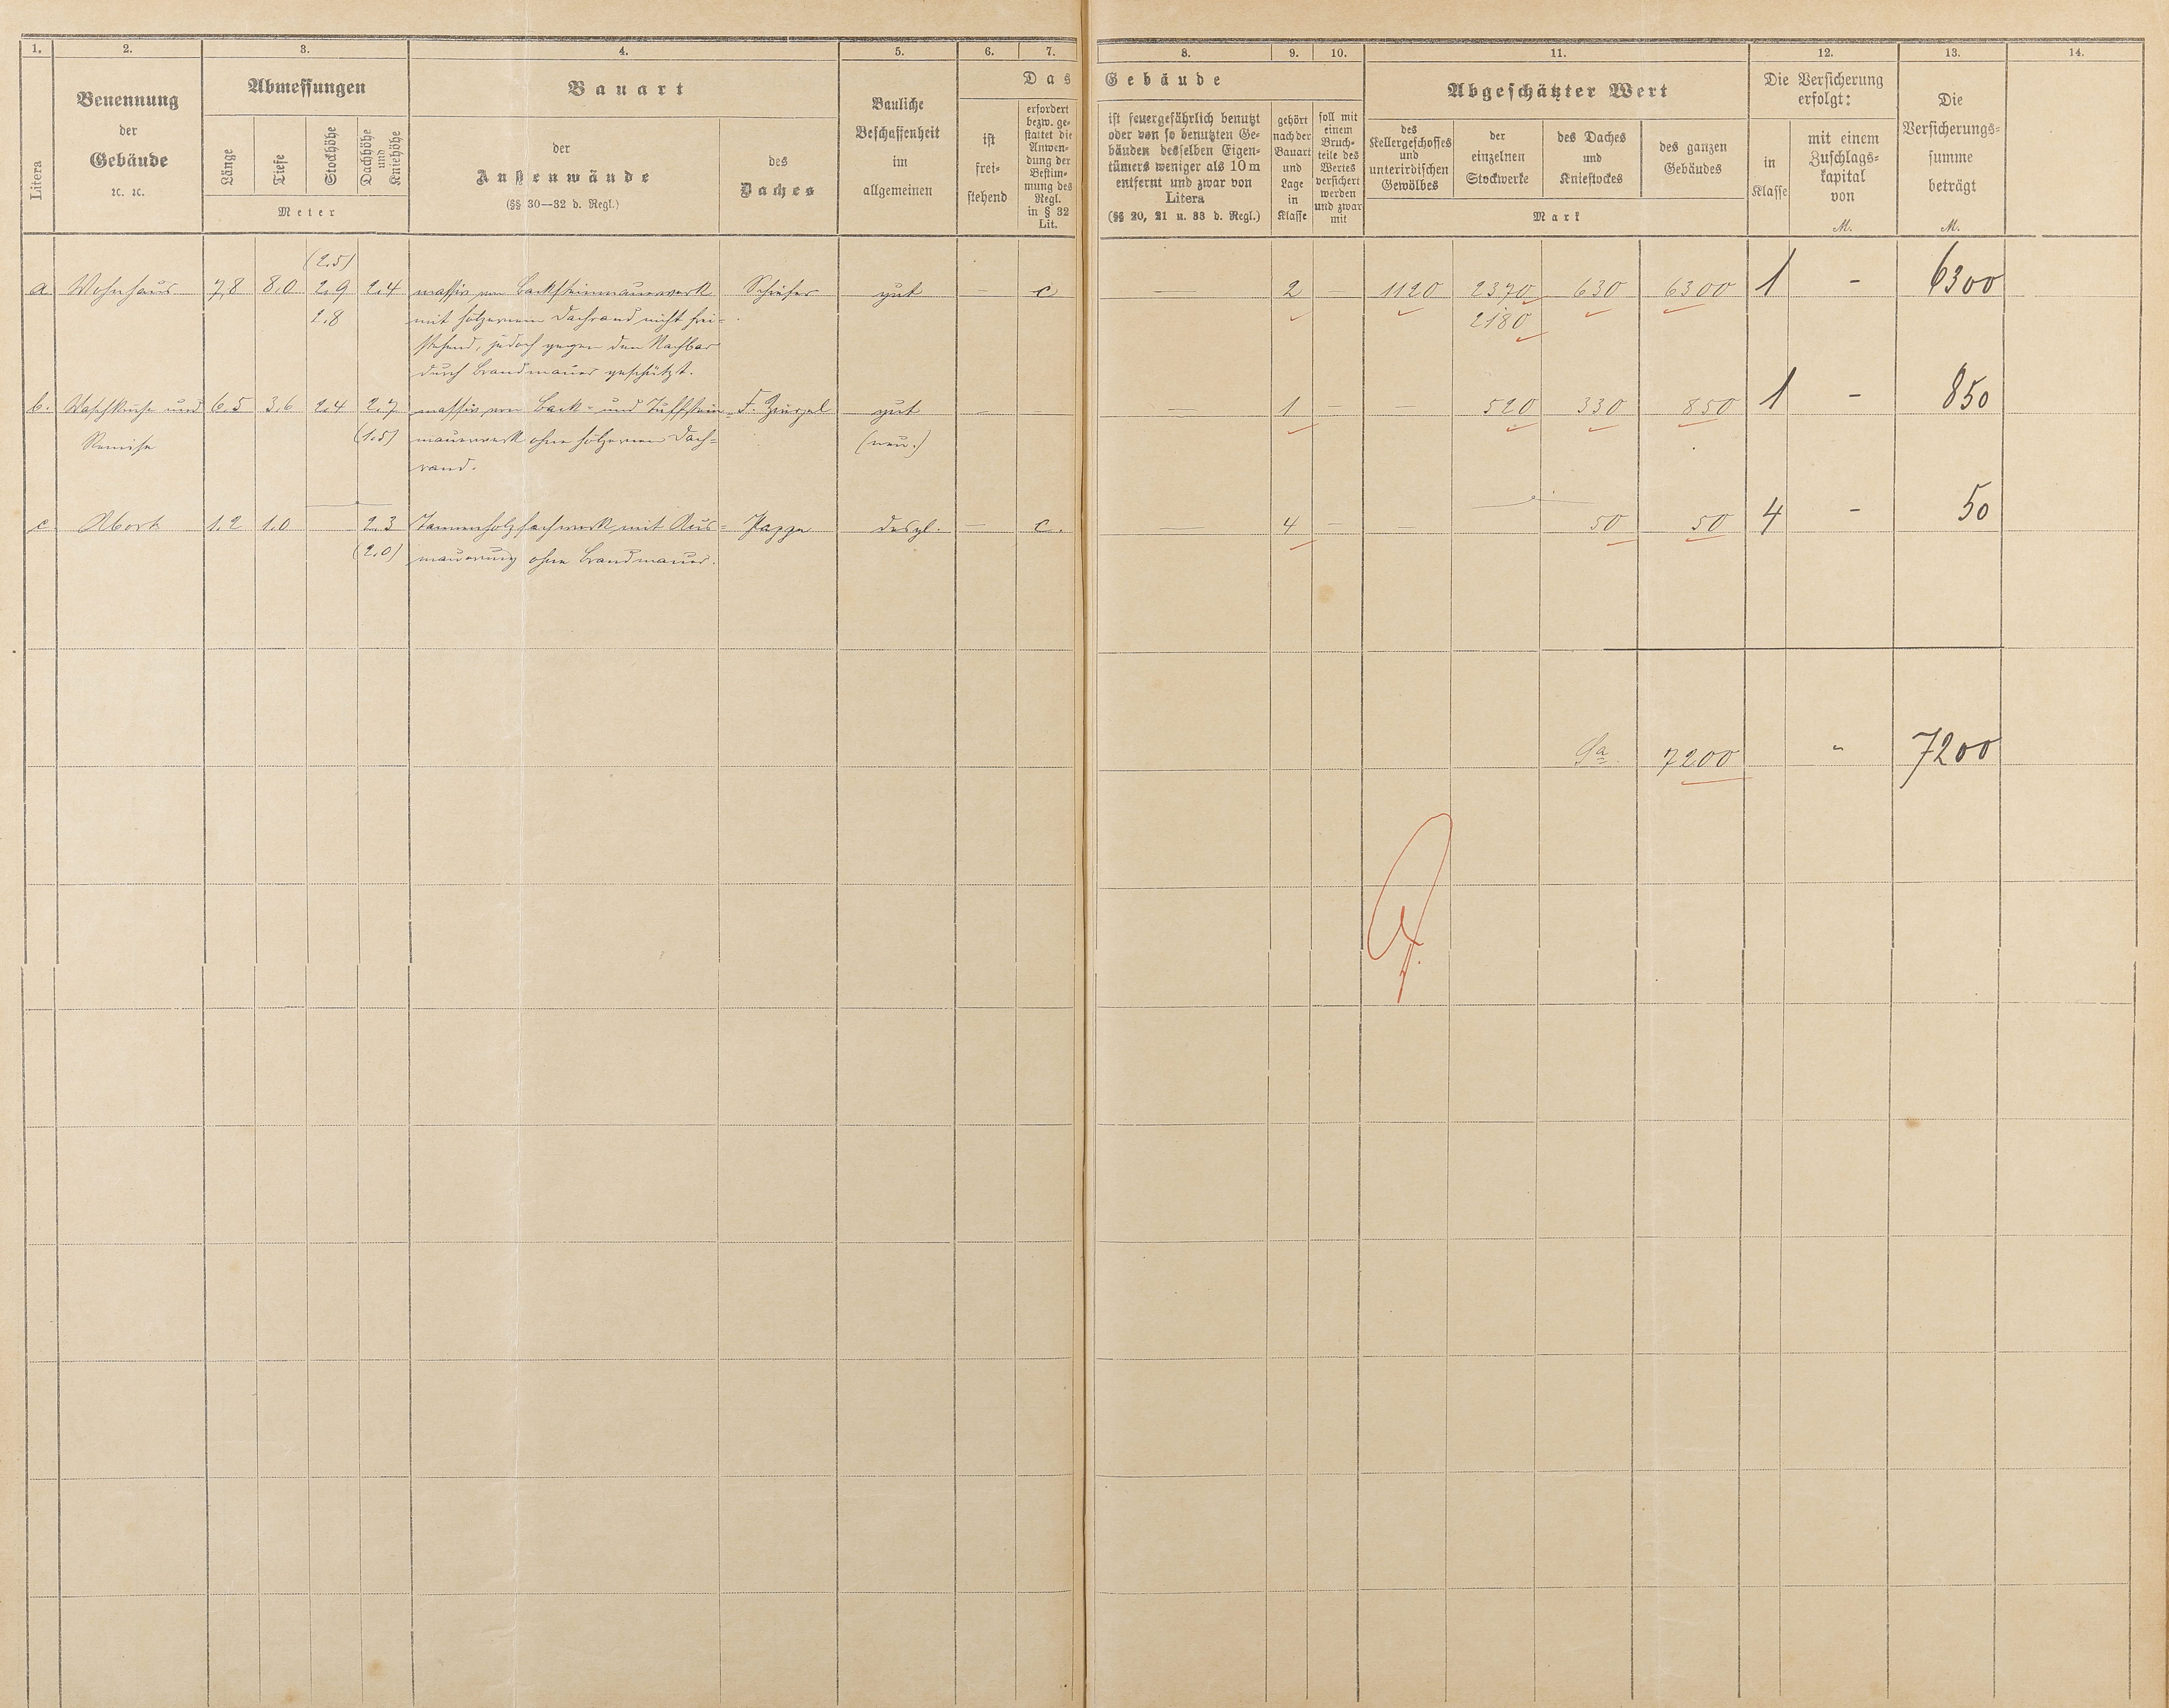 1. 2. 3. 4. 5. 6. 7. 8. 9. 10. 11. 12. 13. 14.
Litera
Benennung
der
Gebäude
ꝛc. ꝛc.
Abmessungen
Länge
Tiefe
Stockhöhe
Dachhöhe
und
Kniehöhe
Meter
Bauart
der
Außenwände
(§§ 30—32 d. Regl.)
des
Daches
Bauliche
Beschaffenheit
im
allgemeinen
Das Gebäude
ist
frei-
stehend
erfordert
bezw. ge-
stattet die
Anwen-
dung der
Bestim-
mung des
Regl.
in § 32
Lit.
ist feuergefährlich benutzt
oder von so benutzten Ge-
bäuden desselben Eigen-
tümers weniger als 10 m
entfernt und zwar von
Litera
(§§ 20, 21 u. 33 d. Regl.)
gehört
nach der
Bauart
und
Lage
in
Klasse
soll mit
einem
Bruch-
teile des
Wertes
versichert
werden
und zwar
mit
Abgeschätzter Wert
des
Kellergeschosses
und
unterirdischen
Gewölbes
der
einzelnen
Stockwerke
des Daches
und
Kniestockes
des ganzen
Gebäudes
Mark
Die Versicherung
erfolgt:
in
Klasse
mit einem
Zuschlags-
kapital
von
M.
Die
Versicherungs-
summe
beträgt
M.
(2.5)
a Wohnhaus 7,8 8.0 2.9 2.4 massiv von Backsteinmauerwerk Schiefer gut — c — 2 — 1120 2370 630 6300 1 - 6300
2.8 mit hölzernem Dachrand nicht frei- 2180
stehend, jedoch gegen den Nachbar
durch Brandmauer geschützt.
b. Waschküche und 6.5 3.6 2.4 2.7 massiv von Back- und Tuffstein- F. Ziegel gut — — — 1 — — 520 330 850 1 - 850
Remise (1.5) mauerwerk ohne hölzernen Dach- (neu.)
rand.
c. Abort 1.2 1.0 — 2.3 Tannenholzfachwerk mit Aus- Pappe desgl. — c. — 4 — — 50 50 4 - 50
(2.0) mauerung ohne Brandmauer.
Sa. 7200 " 7200